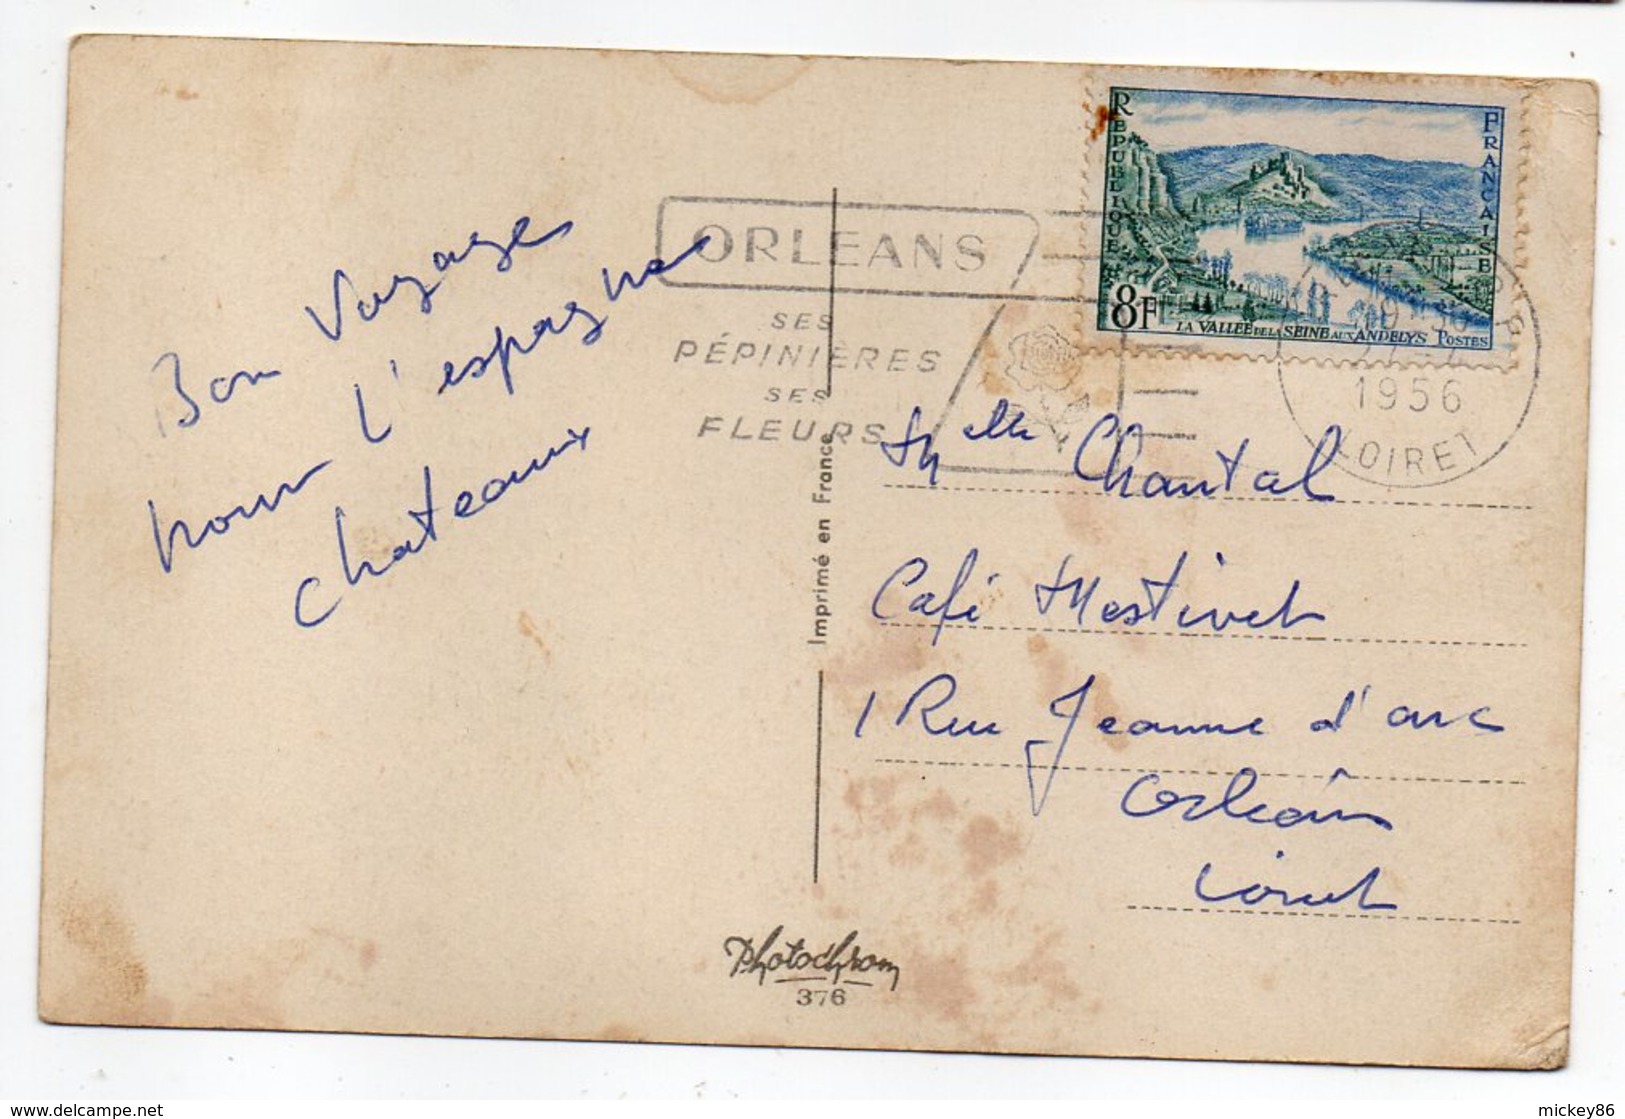 Bon Voyage
pour L'espagne
chateaux
ORLEANS
SES
PÉPINIÈRES
SES
FLEURS
REPUBLIQUE
FRANCAISE
8F
LA VALLÉE DE LA SEINE AUX ANDELYS POSTES
19 30
1956
LOIRET
Imprimé en France
Melle Chantal
Café Mestivet
1 Rue Jeanne d'arc
Orléans
Loiret
Photochrom
376
www.delcampe.net
mickey86